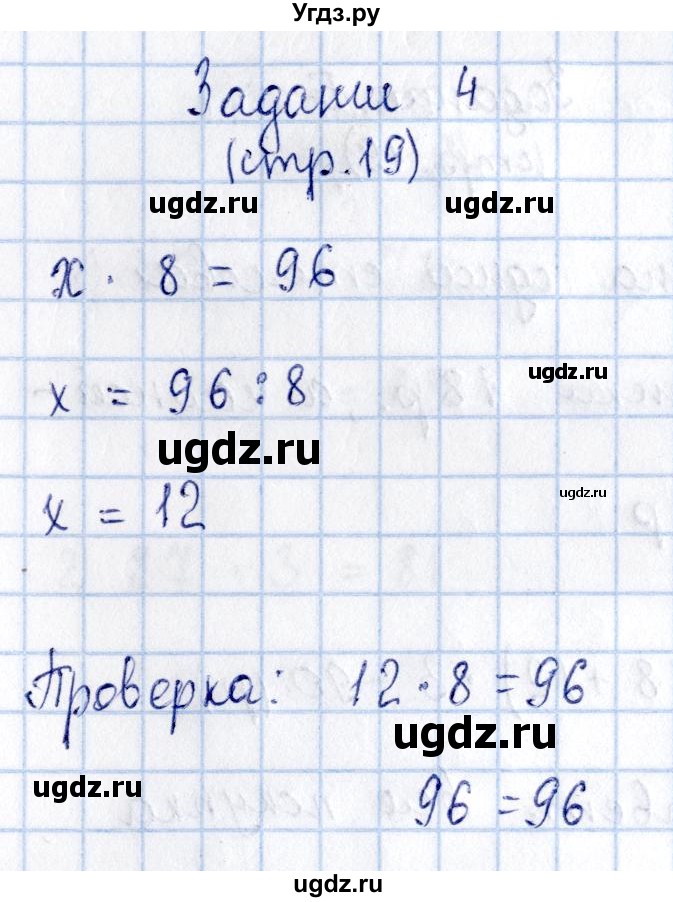 Угдз.ру
Задание 4
(стр. 19)
ugdz.ru ugdz.ru
x · 8 = 96
ugdz.ru
x = 96 : 8
ugdz.ru
ugdz.ru
x = 12
Проверка: 12 · 8 = 96
ugdz.ru
ugdz.ru
96 = 96
ugdz.ru